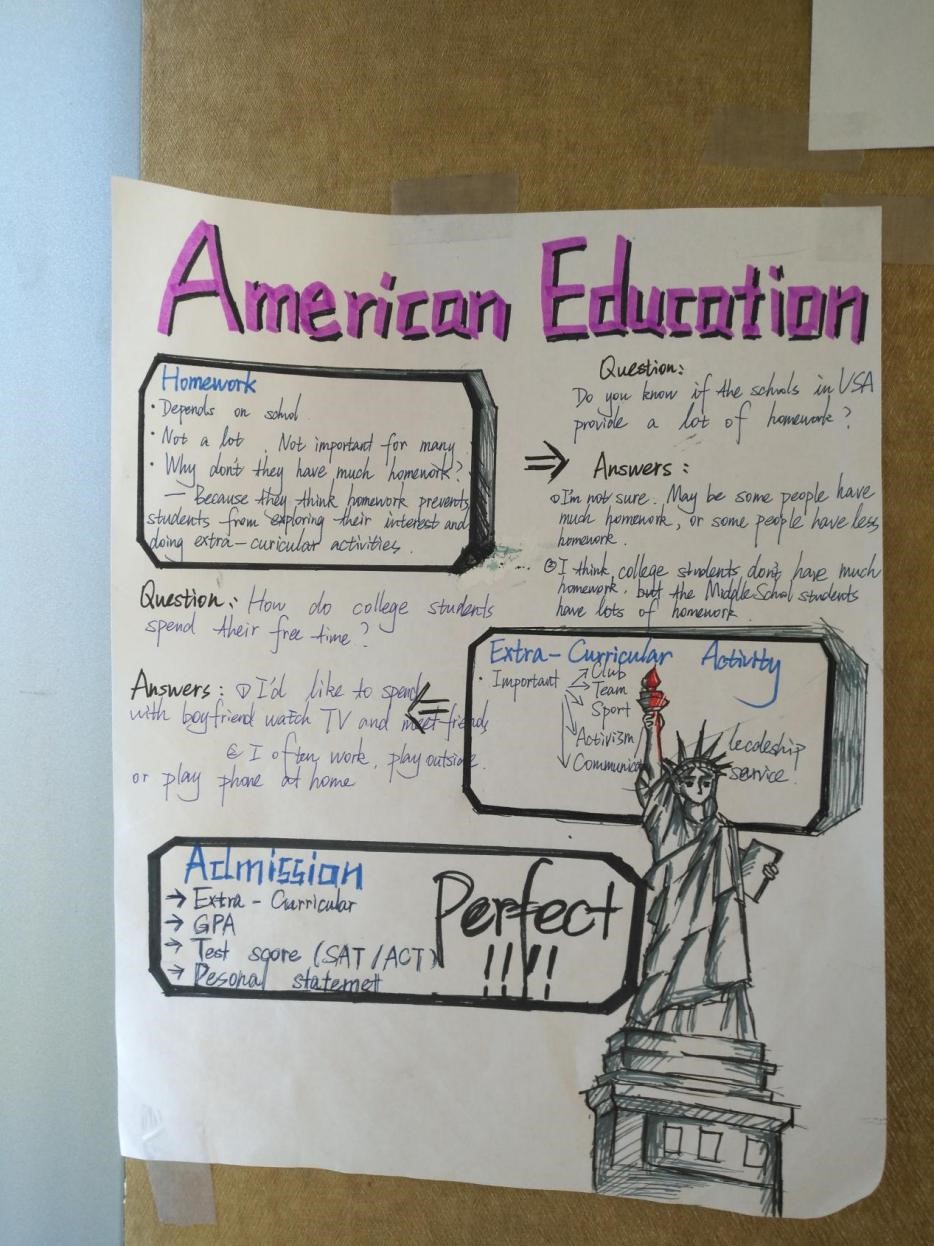 American Education
Homework
· Depends on schol
· Not a lot . Not important for many
· Why don't they have much homework?
— Because they think homework prevents
students from exploring their interest and
doing extra-curicular activities.
Question:
Do you know if the schols in USA
provide a lot of homework?
Answers:
①I'm not sure. May be some people have
much homework, or some people have less
homework.
②I think college students don't have much
homework, but the Middle Schol students
have lots of homework.
Question: How do college students
spend their free time?
Answers: ①I'd like to spend
with boyfriend watch TV and meet friends
② I often work, play outside.
or play phone at home
Extra-Curricular Activity
· Important
Club
Team
Sport
Activism
Communica
leadeship
service.
Admission
→ Extra-Curricular
→ GPA
→ Test score (SAT/ACT)
→ Pesonal statemet
Perfect
!!!!